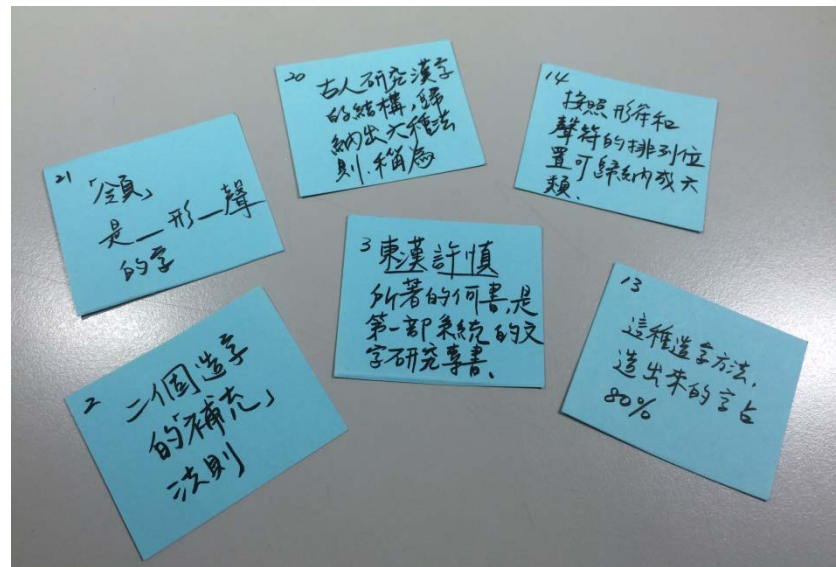 20
古人研究漢字
的結構,歸
納出六種法
則.稱為
14
按照形符和
聲符的排列位
置可歸納成六
類.
21
「領」
是_形_聲
的字
3 東漢許慎
所著的何書,是
第一部系統的文
字研究專書.
13
這種造字方法.
造出來的字占
80%
2
二個造字
的「補充」
法則